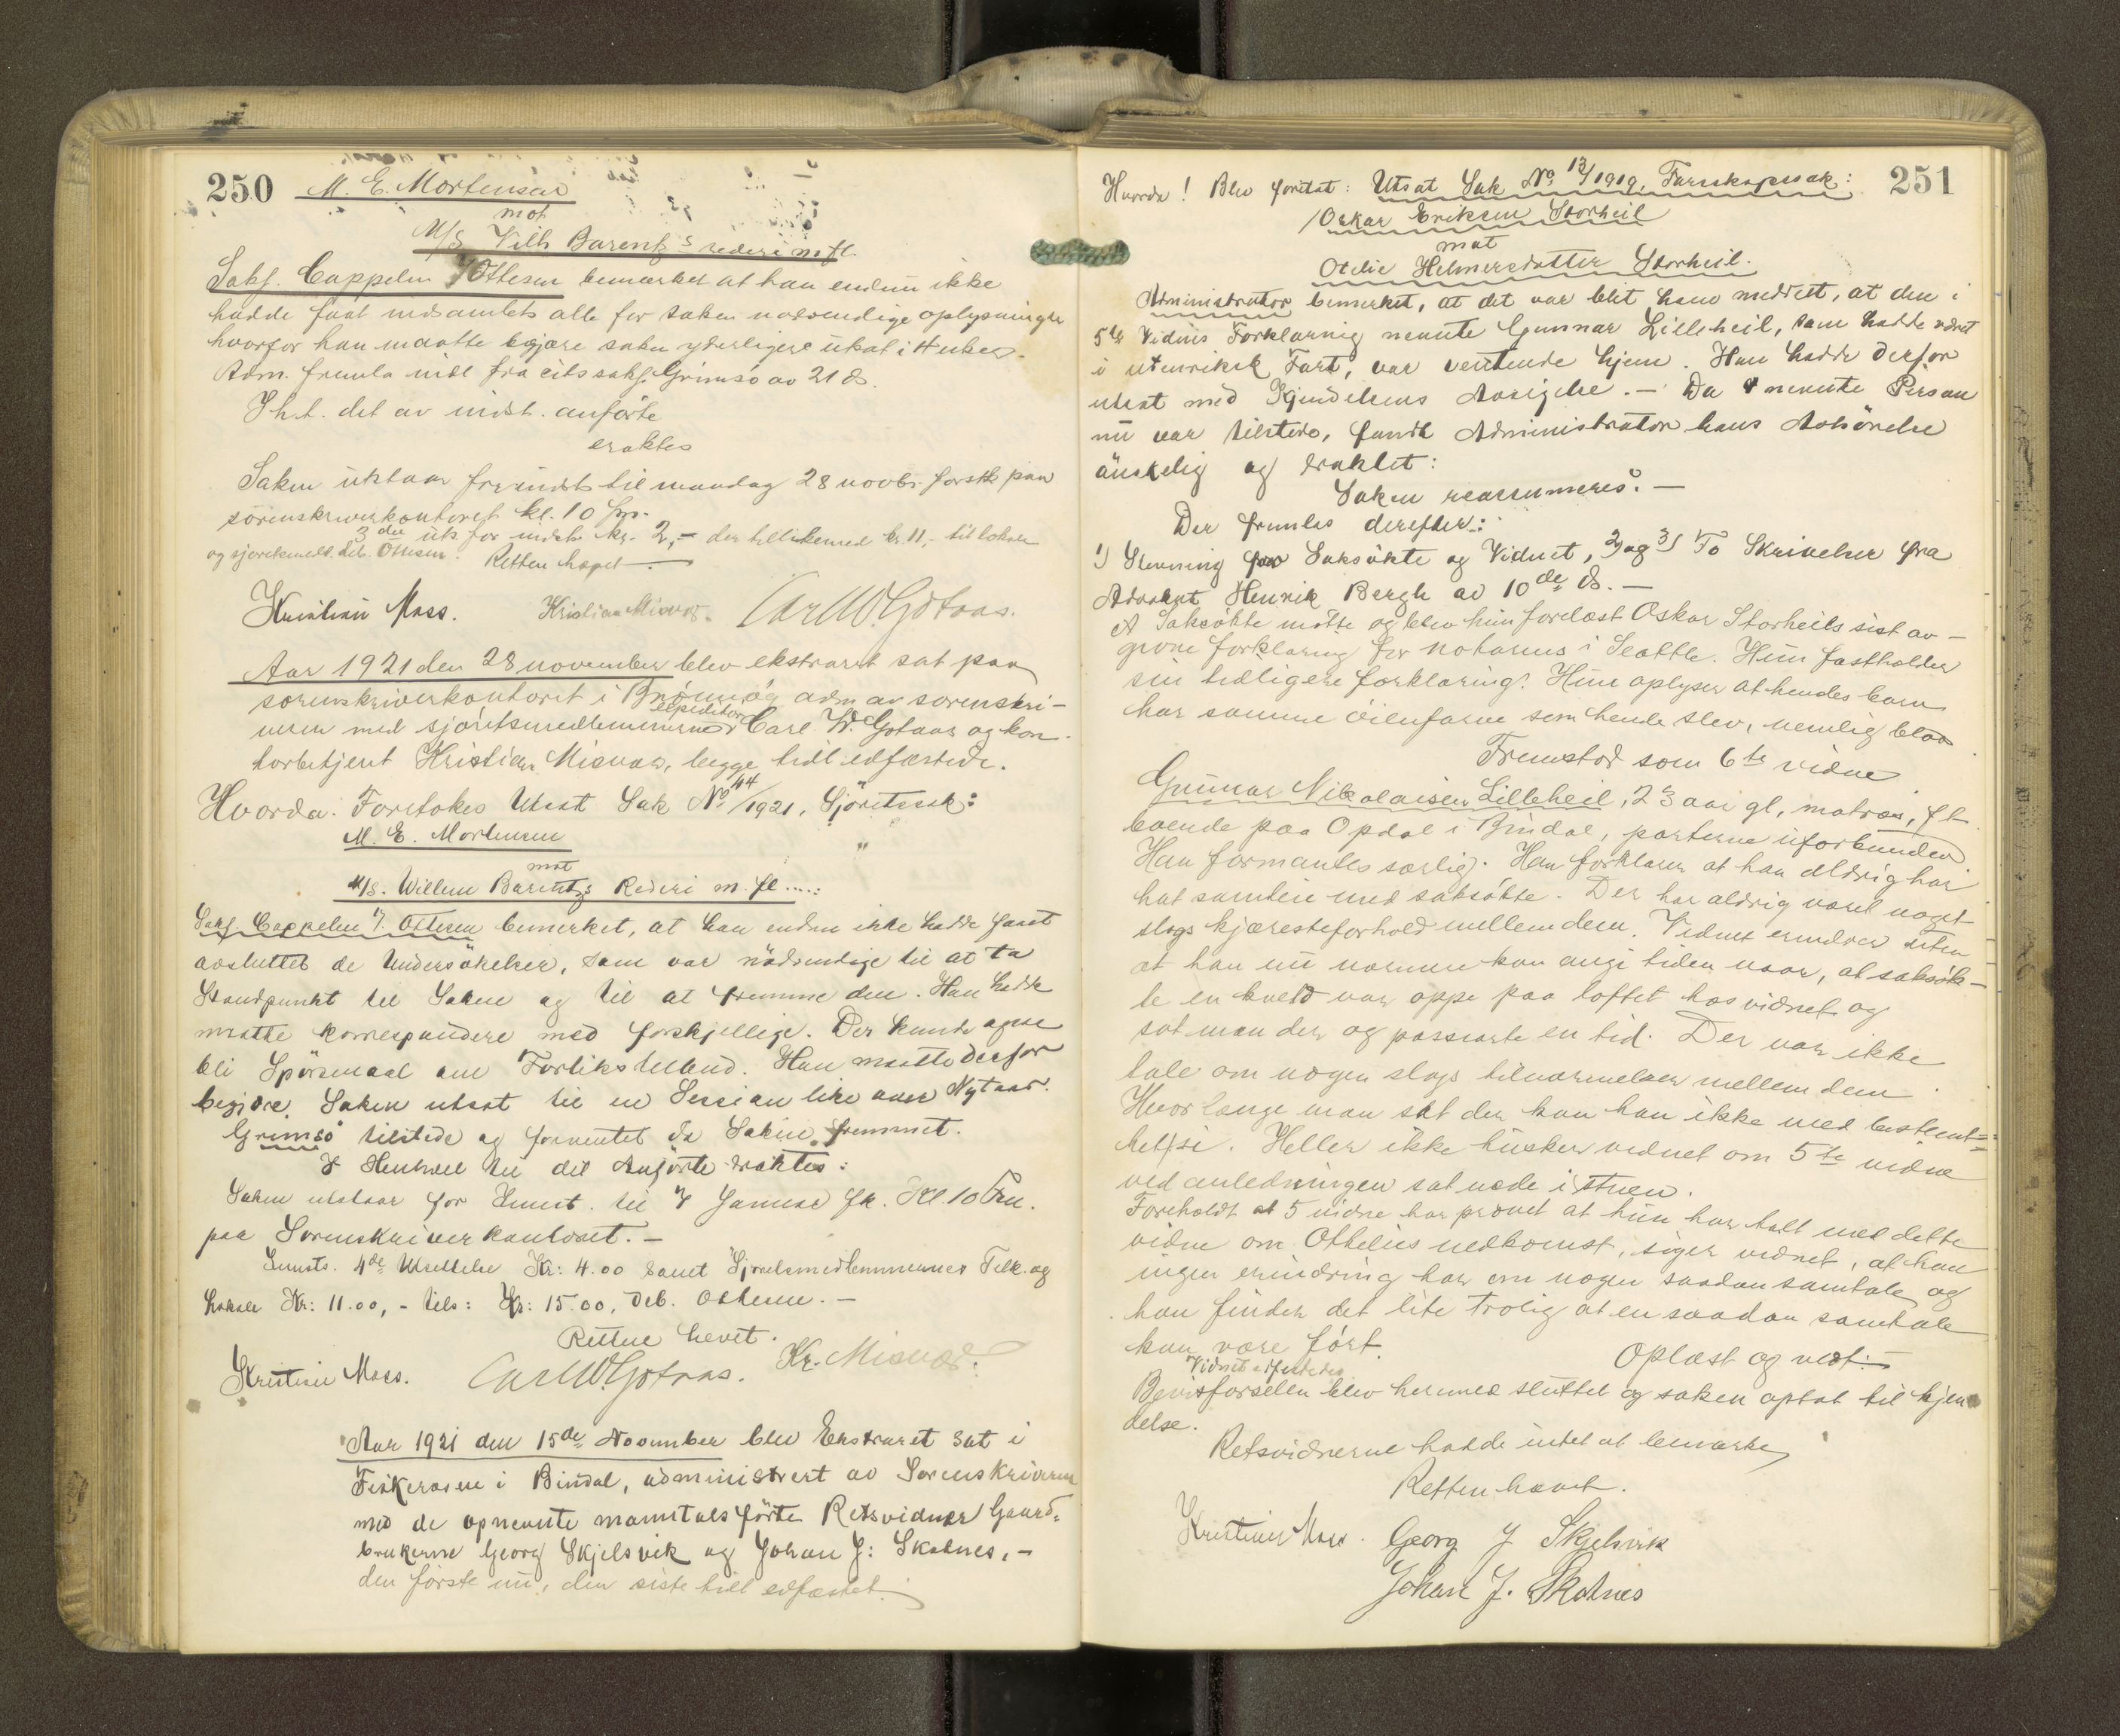 250
M. E. Mortensen
mot
M/S Vilh Barentz's rederi m fl.
Saksf. Cappelen f Ottesen bemærket at han endnu ikke
hadde faat indsamlets alle for saken nødvendige oplysninger
hvorfor han maatte begjære saken yderligere utsat i 4 uker.
Adm. fremla indl fra citssaksf. Grimsø av 21 ds.
I h. t. det av indst. anførte
eraktes
Saken utstaar fr indst til mandag 28 novbr. førstk paa
sorenskriverkontoret kl. 10 fm.
3 die uts for indst. kr. 2,- der tillikemed kr. 11,- til lokale
og sjøretsmedl. deb. Ottesen. Retten hævet
Kristian Moss. Kristian Misvær. Carl W. Gotaas.
Aar 1921 den 28 november blev ekstraret sat paa
sorenskriverkontoret i Brønnøy adm av sorenskri-
veren med sjøretsmedlemmerne expeditør Carl W. Gotaas og kon-
torbetjent Kristian Misvær, begge tidl edfæstede.
Hvorda. Foretokes Utsat Sak No 44/1921, Sjøretssak:
M. E. Mortensen
mot
M/S. Willem Barentz's Rederi m. fl ....:
Saksf. Cappelen f. Ottesen bemerket, at han endnu ikke hadde faaet
avsluttet de Undersøkelser, som var nødvendige til at ta
Standpunkt til Saken og til at fremme den. Han hadde
maatte korrespondere med forskjellige. Der kunde ogsaa
bli Spørsmaal om Forliks tilbud. Han maatte derfor
begjære Saken utsat til en Session like over Nytaar.
Grimsø tilstede og forventet da Saken fremmet.
I Henhold til det Anførte eraktes:
Saken utstaar for Innst. til 7 Januar fk. Kl. 10 Fm.
paa Sorenskriverkontoret. -
Innsts. 4de Utsettelse Kr: 4.00 samt Sjøretsmedlemmernes Tilk. og
Lokale Kr: 11.00, - tils: Kr: 15.00, Deb. Ottesen. -
Retten hevet.
Kristian Moss. Carl W. Gotaas. Kr. Misvær.
Aar 1921 den 15de November blev Ekstraret sat i
Fiskerosen i Bindal, administrert av Sorenskriveren
med de opnevnte manntalsførte Retsvidner Gaard-
brukerne Georg Skjelsvik og Johan J: Skotnes, -
den første nu, den siste tidl edfæstet.
251
Hvorda! Blev foretat: Utsat Sak No 13/1919, Farskapssak:
Oskar Eriksen Storheil
mot
Otelie Helmersdatter Storheil.
Administrator bemerket, at det var blit ham meddelt, at den i
5te Vidnes Forklaring nevnte Gunnar Lilleheil, som hadde været
i utenriksk Fart, var ventende hjem. Han hadde derfor
utsat med Kjendelsens Avsigelse. - Da nevnte Person
nu var tilstede, fandt Administrator hans Avhørelse
ønskelig og eraktet:
Saken reassumeres. -
Der fremlas derefter:
1) Stevning for Saksøkte og Vidnet, 2) og 3) To Skrivelser fra
Advokat Henrik Bergh av 10de ds. -
Saksøkte møtte og blev hun forelæst Oskar Storheils sist av-
givne forklaring for notarius i Seattle. Hun fastholder
sin tidligere forklaring. Hun oplyser at hendes barn
har samme øienfarve som hende selv, nemlig blaa
Fremstod som 6te vidne
Gunnar Nikolaisen Lilleheil, 23 aar gl, matros, f t
boende paa Opdal i Bindal, parterne uforbunden
Han formantes særlig. Han forklarer at han aldrig har
hat samleie med saksøkte. Der har aldrig været noget
slags kjæresteforhold mellem dem. Vidnet erindrer uten
at han nu nærmere kan angi tiden naar, at saksøk-
te en kveld var oppe paa loftet hos vidnet og
sat man der og passiarte en tid. Der var ikke
tale om nogen slags tilnærmelser mellem dem.
Hvorlænge man sat der kan han ikke med bestemt-
het si. Heller ikke husker vidnet om 5te vidne
ved anledningen sat nede i stuen.
Foreholdt at 5 vidne har prøvet at hun har talt med dette
vidne om Othelies nedkomst, siger vidnet, at han
ingen erindring har om nogen saadan samtale og
han finder det lite trolig at en saadan samtale
kan være ført.
Oplæst og vedt. -
Vidnet edfæstedes
Bevisførselen blev hermed sluttet og saken optat til kjen-
delse.
Retsvidnerne hadde intet at bemærke
Retten hævet.
Kristian Moss. Georg J Skjelsvik
Johan J. Skotnes